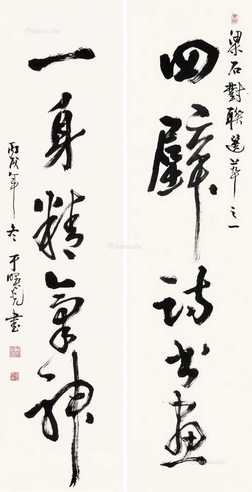 梁石對联選萃之一
四壁詩书画
一身精氣神
丙戌年冬于曙光書